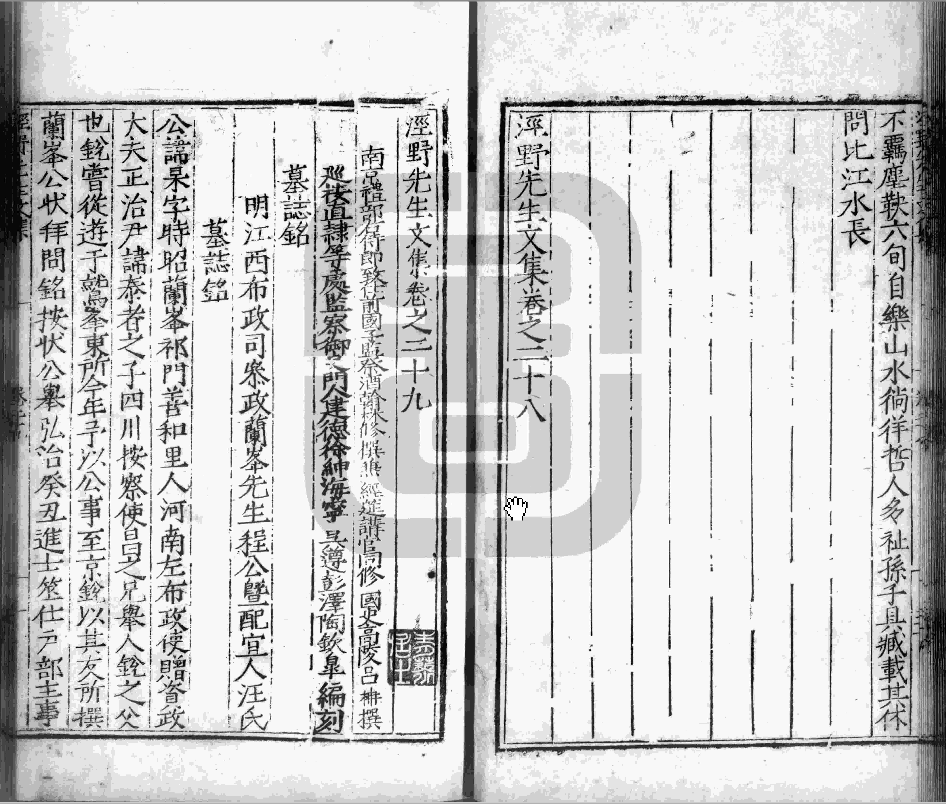 不羈塵鞅六旬自樂山水徜徉哲人多祉孫子具臧載其休
問比江水長
涇野先生文集卷之二十八
涇野先生文集卷之二十九
南京禮部侍郎致仕前國子監祭酒翰林修撰兼 經筵講官同修 國史高陵呂柟撰
巡按直隸等處監察御史門人建德徐紳海寧吳遵彭澤陶欽皐編刻
墓誌銘
明江西布政司叅政蘭峯先生程公曁配宜人汪氏
墓誌銘
公諱杲字時昭蘭峯祁門善和里人河南左布政使贈資政
大夫正治尹諱泰者之子四川按察使昌之兄舉人銳之父
也銳嘗從遊于鷲峯東所今年予以公事至京銳以其友所撰
蘭峯公狀拜問銘按狀公舉弘治癸丑進士筮仕戸部主事